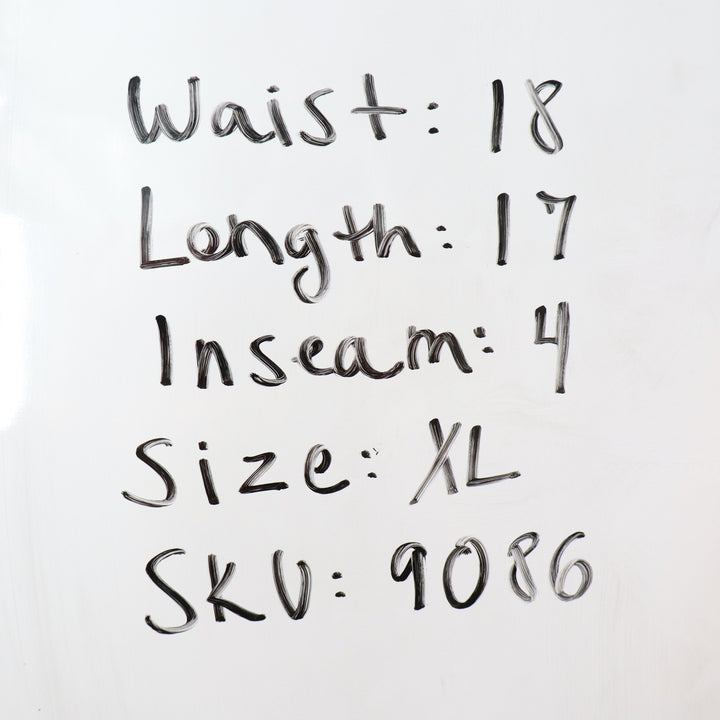 Waist: 18
Length: 17
Inseam: 4
Size: XL
SKU: 9086